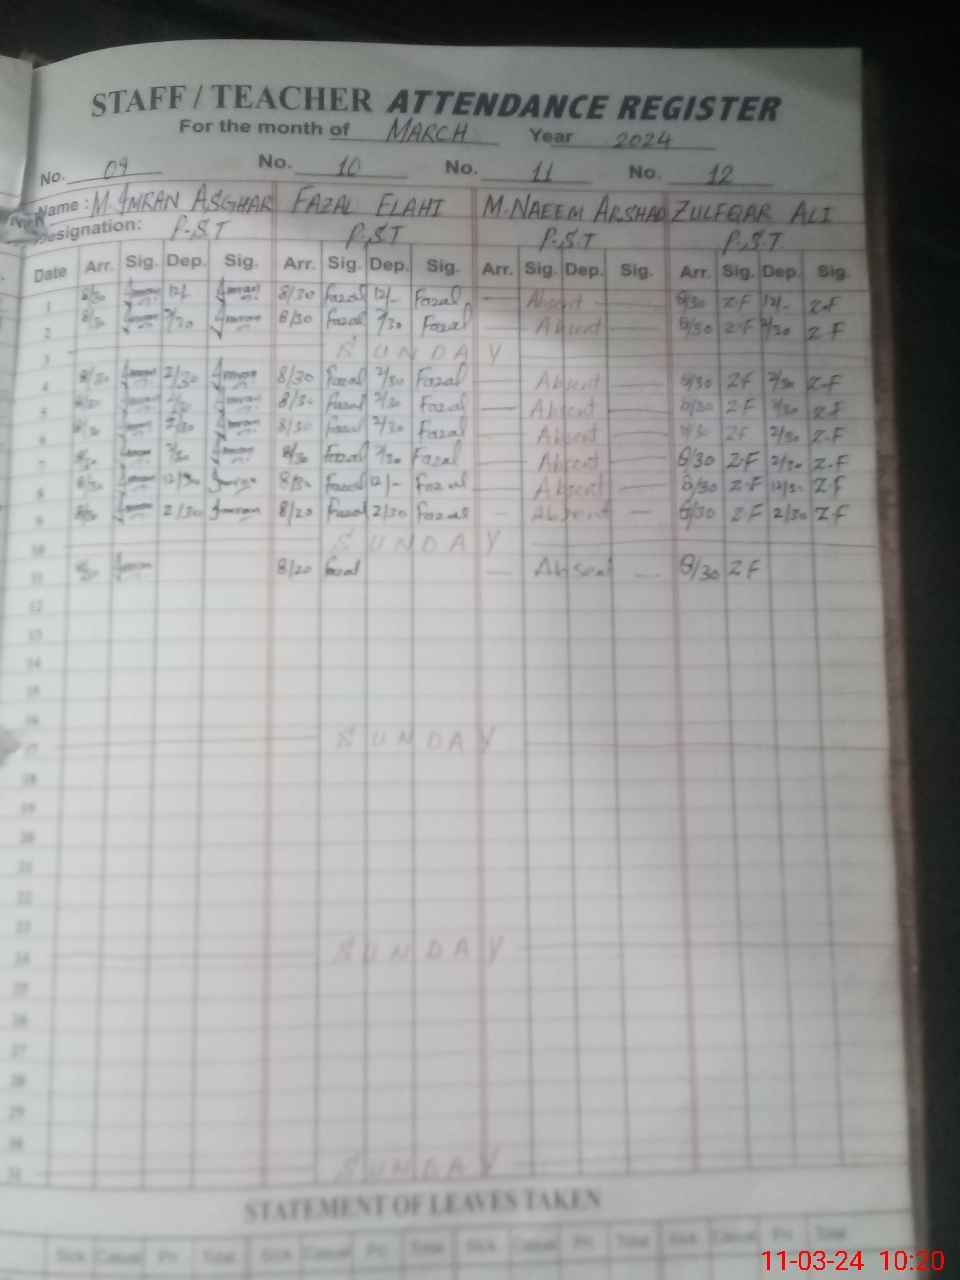 STAFF / TEACHER ATTENDANCE REGISTER
For the month of MARCH Year 2024
No. 09 No. 10 No. 11 No. 12
Name : M. IMRAN ASGHAR FAZAL ELAHI M. NAEEM ARSHAD ZULFQAR ALI
Designation: P.S.T P.S.T P.S.T P.S.T
Date Arr. Sig. Dep. Sig. Arr. Sig. Dep. Sig. Arr. Sig. Dep. Sig. Arr. Sig. Dep. Sig.
1 8/30 Imran 12/- Imran 8/30 Fazal 12/- Fazal Absent 8/30 Z.F 12/- Z.F
2 8/30 Imran 2/30 Imran 8/30 Fazal 2/30 Fazal Absent 8/30 Z.F 2/30 Z.F
3 SUNDAY
4 8/30 Imran 2/30 Imran 8/30 Fazal 2/30 Fazal Absent 8/30 ZF 2/30 Z.F
5 8/30 Imran 2/30 Imran 8/30 Fazal 2/30 Fazal Absent 8/30 Z.F 2/30 Z.F
6 8/30 Imran 2/30 Imran 8/30 Fazal 2/30 Fazal Absent 8/30 ZF 2/30 Z.F
7 8/30 Imran 2/30 Imran 8/30 Fazal 2/30 Fazal Absent 8/30 Z.F 2/30 Z.F
8 8/30 Imran 12/30 Imran 8/30 Fazal 12/- Fazal Absent 8/30 Z.F 12/30 Z.F
9 8/30 Imran 2/30 Imran 8/20 Fazal 2/30 Fazal Absent 8/30 Z.F 2/30 Z.F
10 SUNDAY
11 Imran 8/20 Fazal Absent 8/30 ZF
12
13
14
15
16
17 SUNDAY
18
19
20
21
22
23
24 SUNDAY
25
26
27
28
29
30
31 SUNDAY
STATEMENT OF LEAVES TAKEN
Sick Casual Pri Total Sick Casual Pri Total Sick Casual Pri Total Sick Casual Pri Total
11-03-24 10:20